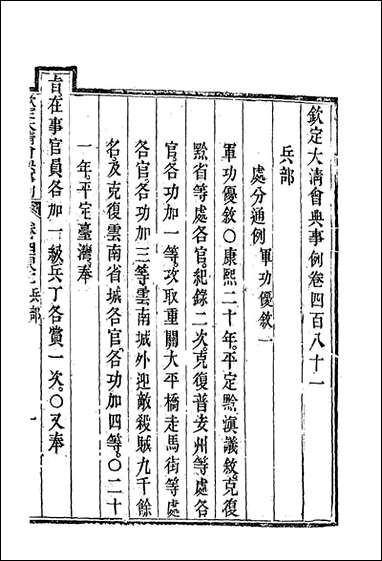 欽定大清會典事例卷四百八十一
兵部
處分通例 軍功優敘一
軍功優敘○康熙二十年平定黔滇議敘克復
黔省等處各官紀錄二次克復普安州等處各
官各功加一等攻取重關大平橋走馬街等處
各官各功加三等雲南城外迎敵殺賊九千餘
名及克復雲南省城各官各功加四等○二十
一年平定臺灣奉
旨在事官員各加一級兵丁各賞一次○又奉
兵部
一